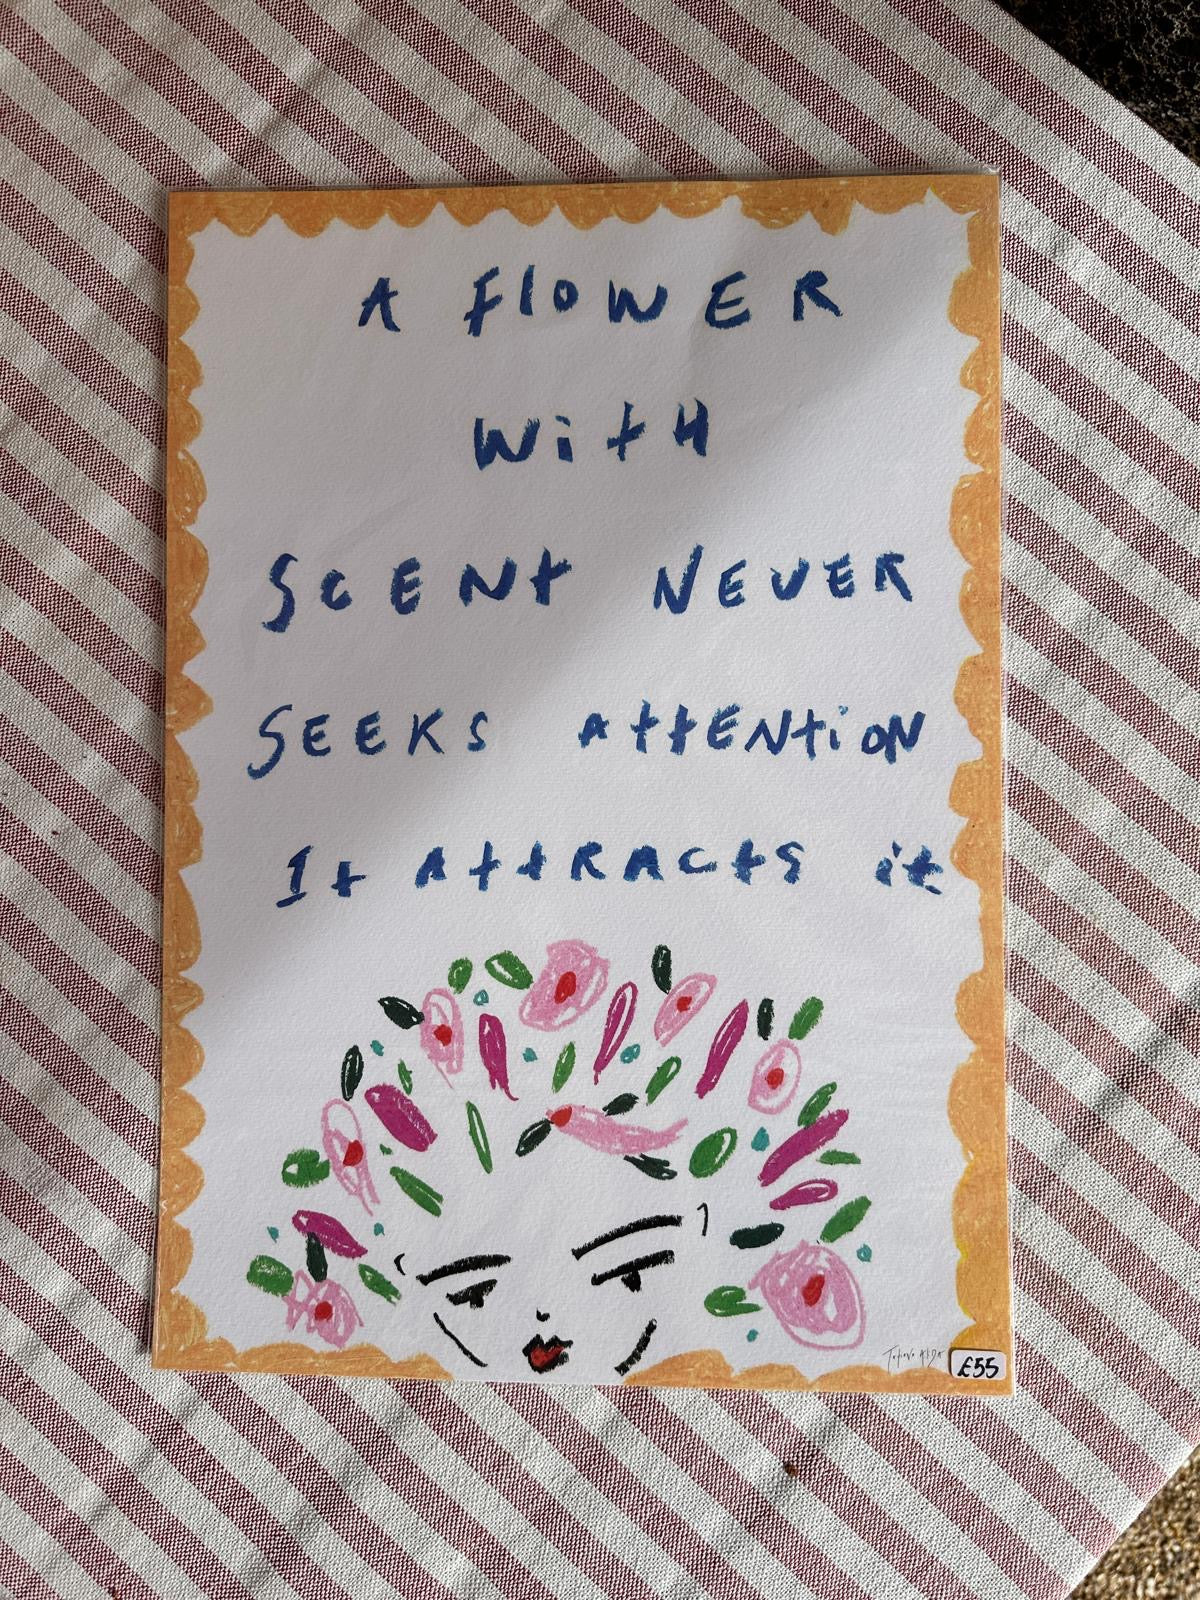 A FlOWER
With
SCENt NEVER
SEEKS AttENtiON
It AttRACtS it
Tatiana Alida
£55